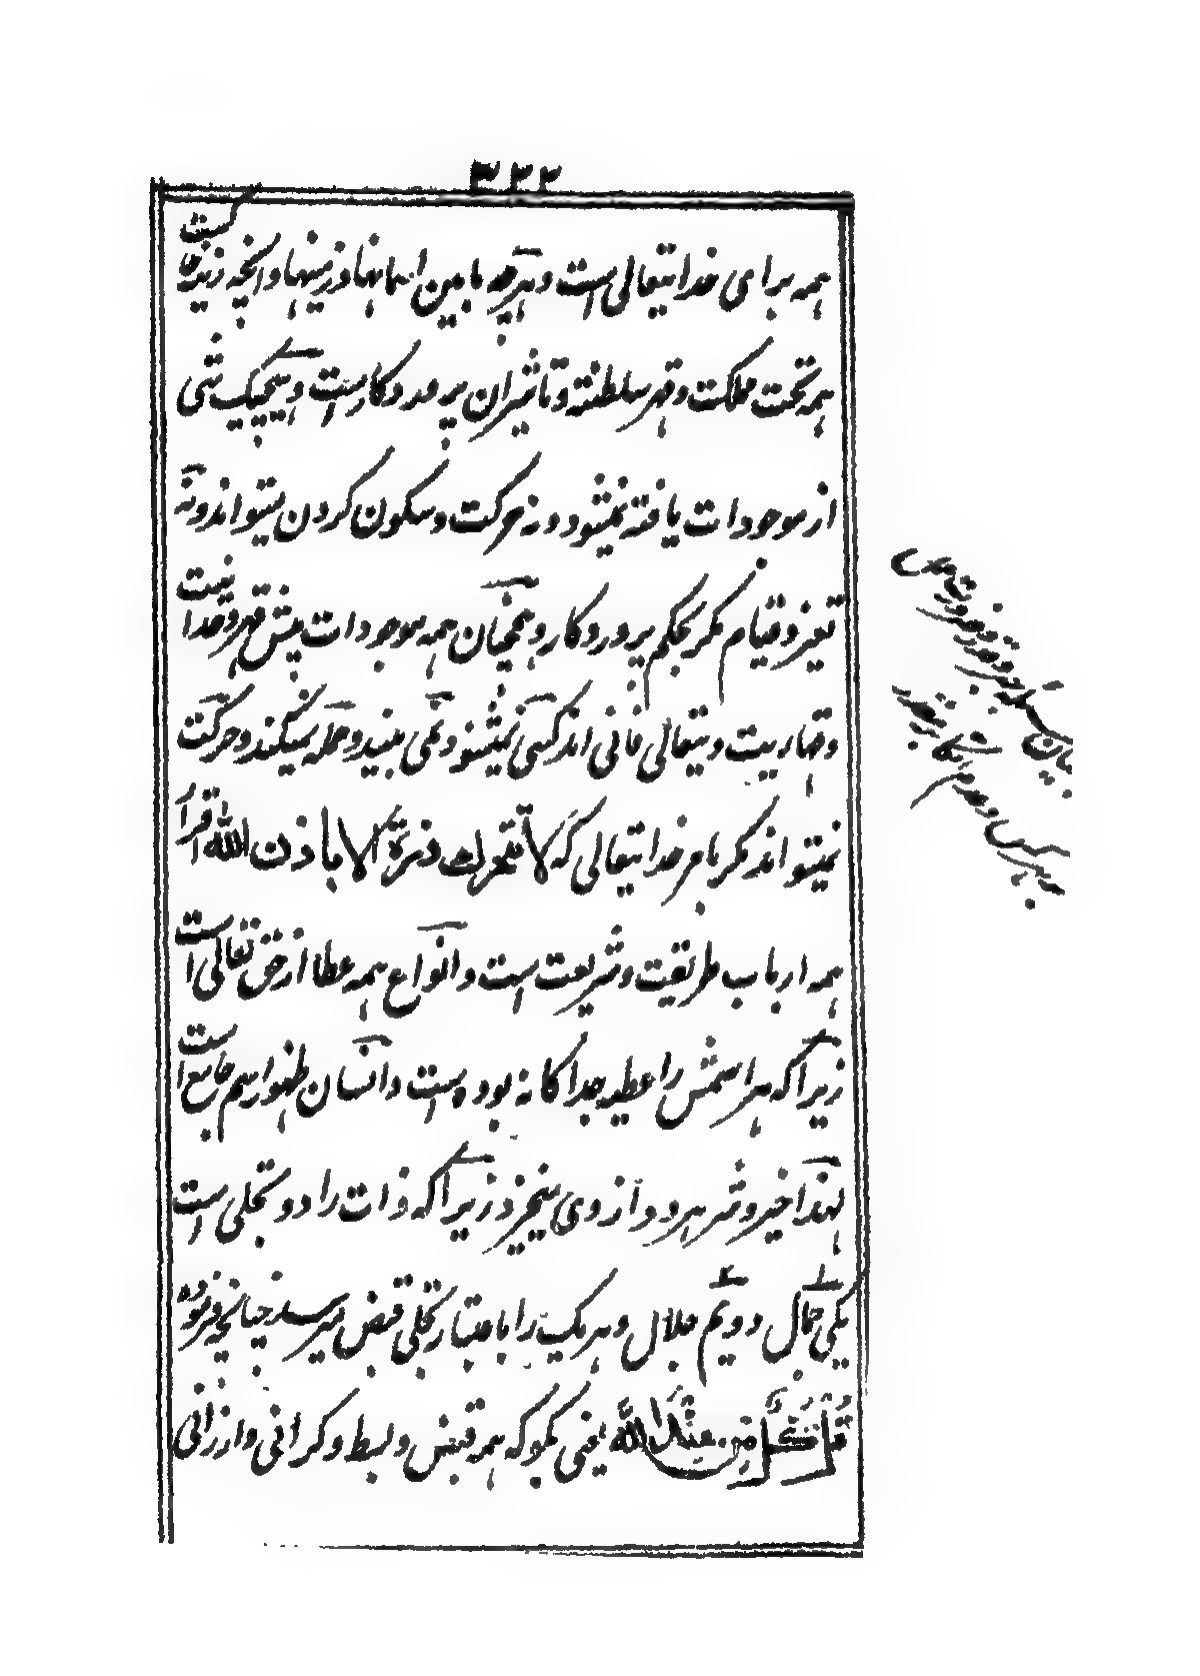 ۳۲۲
همه برای خدایتعالی است و هرچه مابین اسمانها و زمینها و انچه زیر خاکست
همه تحت مملکت و قهر سلطنت و تاثیر ان پروردکار است و هیچیک شی
از موجودات یافته نمیشود و نه حرکت و سکون کردن میتواند و نه
تغیر و قیام مکر بحکم پروردکار و همچنان همه موجودات پیش قهر وحدانیت
و قهاریت ویتعالی فانی اند کسی نمیشنود و نمی بیند و حمله نمیکند و حرکت
نمیتواند مکر بامر خدایتعالی که لا تتحرك ذرة الا باذن الله اقرار
همه ارباب طریقت و شریعت است و انواع همه عطا از حق تعالی است
زیراکه هر اسمش را عطیه جداکانه بوده است و انسان ظهور اسم جامع است
لهذا خیر و شر هر دو از وی میخیزد زیراکه ذات را دو تجلی است
یکی جمال دویم جلال و هر یک را باعتبار تجلی قبض میرسد چنانچه فرموده
قُلْ كُلٌّ مِنْ عِنْدِ اللهِ یعنی بکو که همه قبض و بسط و کرانی و ارزانی
بیان
به هر کس و عدم انکار بر تقدیر